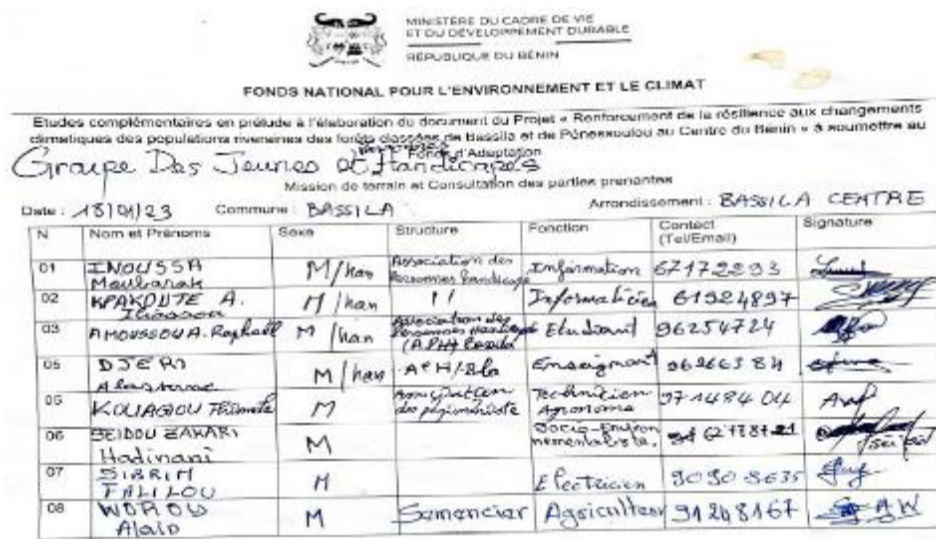 MINISTÈRE DU CADRE DE VIE
ET DU DÉVELOPPEMENT DURABLE
RÉPUBLIQUE DU BÉNIN
FONDS NATIONAL POUR L'ENVIRONNEMENT ET LE CLIMAT
Etudes complémentaires en prélude à l'élaboration du document du Projet « Renforcement de la résilience aux changements
climatiques des populations riveraines des forêts classées de Bassila et de Pénessoulou au Centre du Bénin » à soumettre au
Fonds d'Adaptation
Groupe Des Jeunes et Handicapés
Mission de terrain et Consultation des parties prenantes
Date : 18/01/23 Commune : BASSILA Arrondissement : BASSILA CENTRE
N Nom et Prénoms Sexe Structure Fonction Contact (Tel/Email) Signature
01 INOUSSA Moubarak M/han Association des Personnes handicapé Information 67172293
02 KPAKOUTE A. M/han 11 Informaticien 61924897
03 AMOUSSOU A. Raphaël M/han Association des Personnes (APH) Bassila Etudiant 96254724
05 DJERI M/han APH/Bla Enseignant 96266384
05 M Association Technicien Agronome 97148404
06 SEIDOU ZAKARI Hadinani M Socio-Environnementaliste,
07 SIBRIM TALILOU M Electricien
08 WOROU Alain M Semencier Agriculteur 91248167 AW